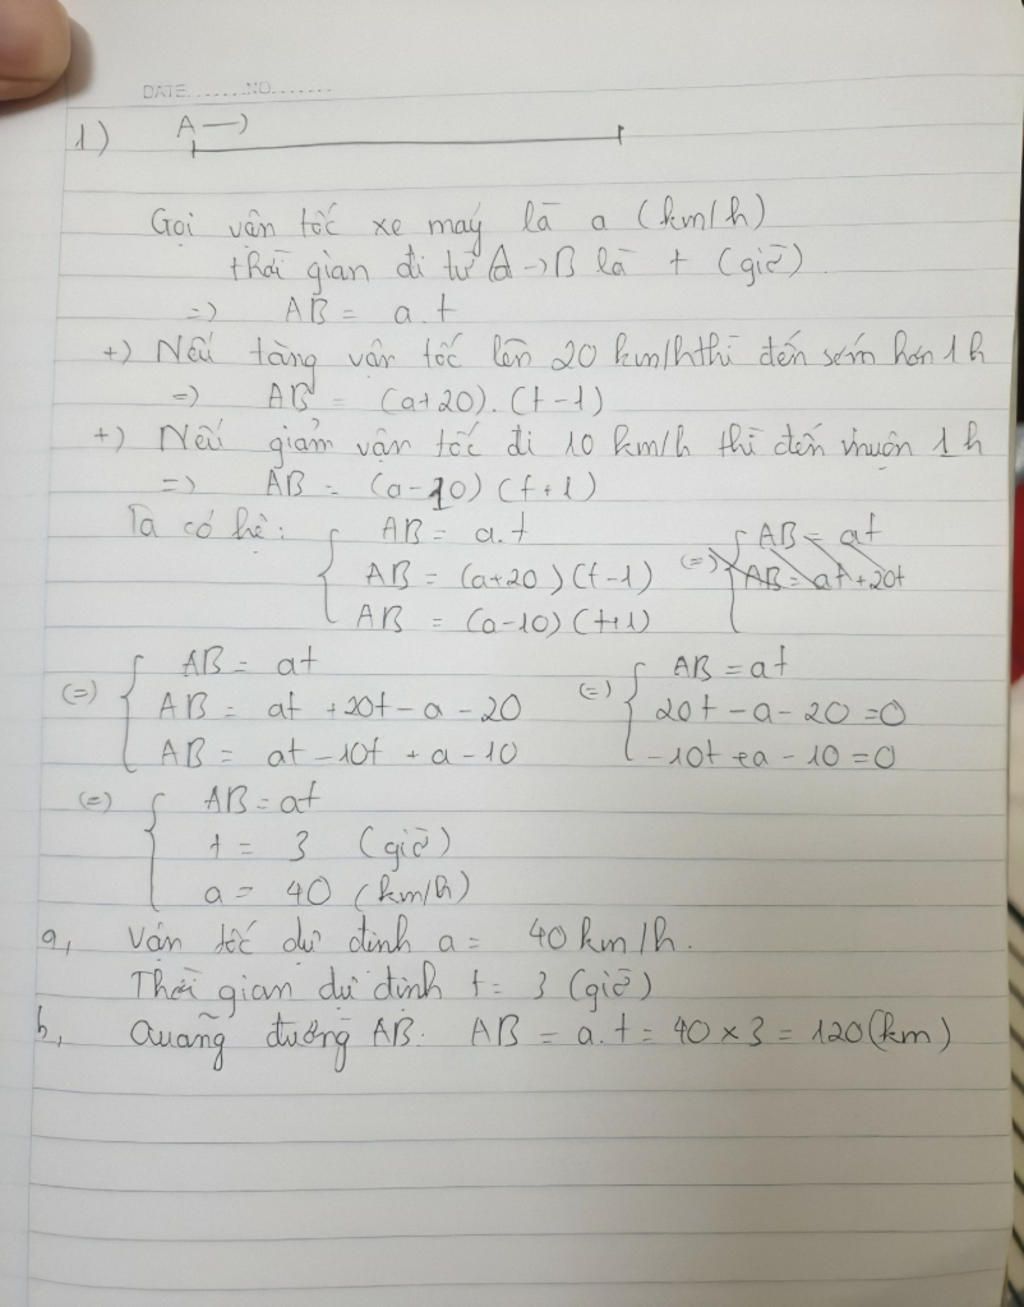 DATE.......NO.......
1) A →
Gọi vận tốc xe máy là a (km/h)
thời gian đi từ A → B là t (giờ)
=> AB = a.t
+) Nếu tăng vân tốc lên 20 km/h thì đến sớm hơn 1h
=> AB = (a+20).(t-1)
+) Nếu giảm vận tốc đi 10 km/h thì đến muộn 1h
=> AB = (a-10)(t+1)
Ta có hệ: { AB = a.t (=) { AB = at
AB = (a+20)(t-1) AB = at+20t
AB = (a-10)(t+1)
(=) { AB = at (=) { AB = at
AB = at +20t - a - 20 20t - a - 20 = 0
AB = at - 10t + a - 10 -10t + a - 10 = 0
(=) { AB = at
t = 3 (giờ)
a = 40 (km/h)
a, Vận tốc dự định a = 40 km/h.
Thời gian dự định t = 3 (giờ)
b, Quãng đường AB: AB = a.t = 40 × 3 = 120 (km)